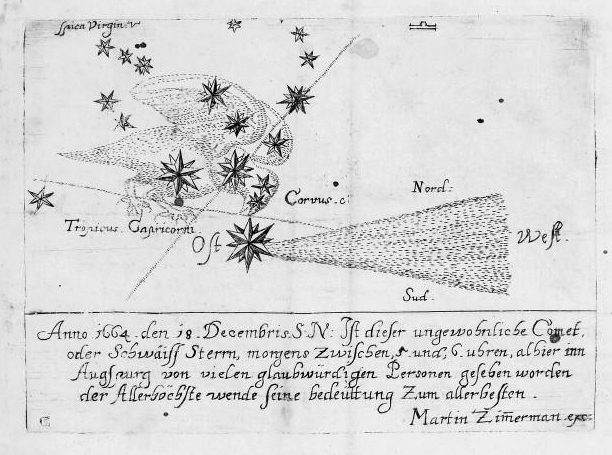 Spica Virginis
Corvus. c.
Nord:
Tropicus Capricorni
Ost
West.
Sud.
Anno 1664 den 18. Decembris S. N. Ist dieser ungewohnliche Comet,
oder Schwäiff Stern, morgens Zwischen, 5 und, 6. uhren, alhier inn
Augspurg von vielen glaubwürdigen Personen gesehen worden
der Allerhöchste wende seine bedeüttung Zum allerbesten.
Martin Zim̄erman exc: